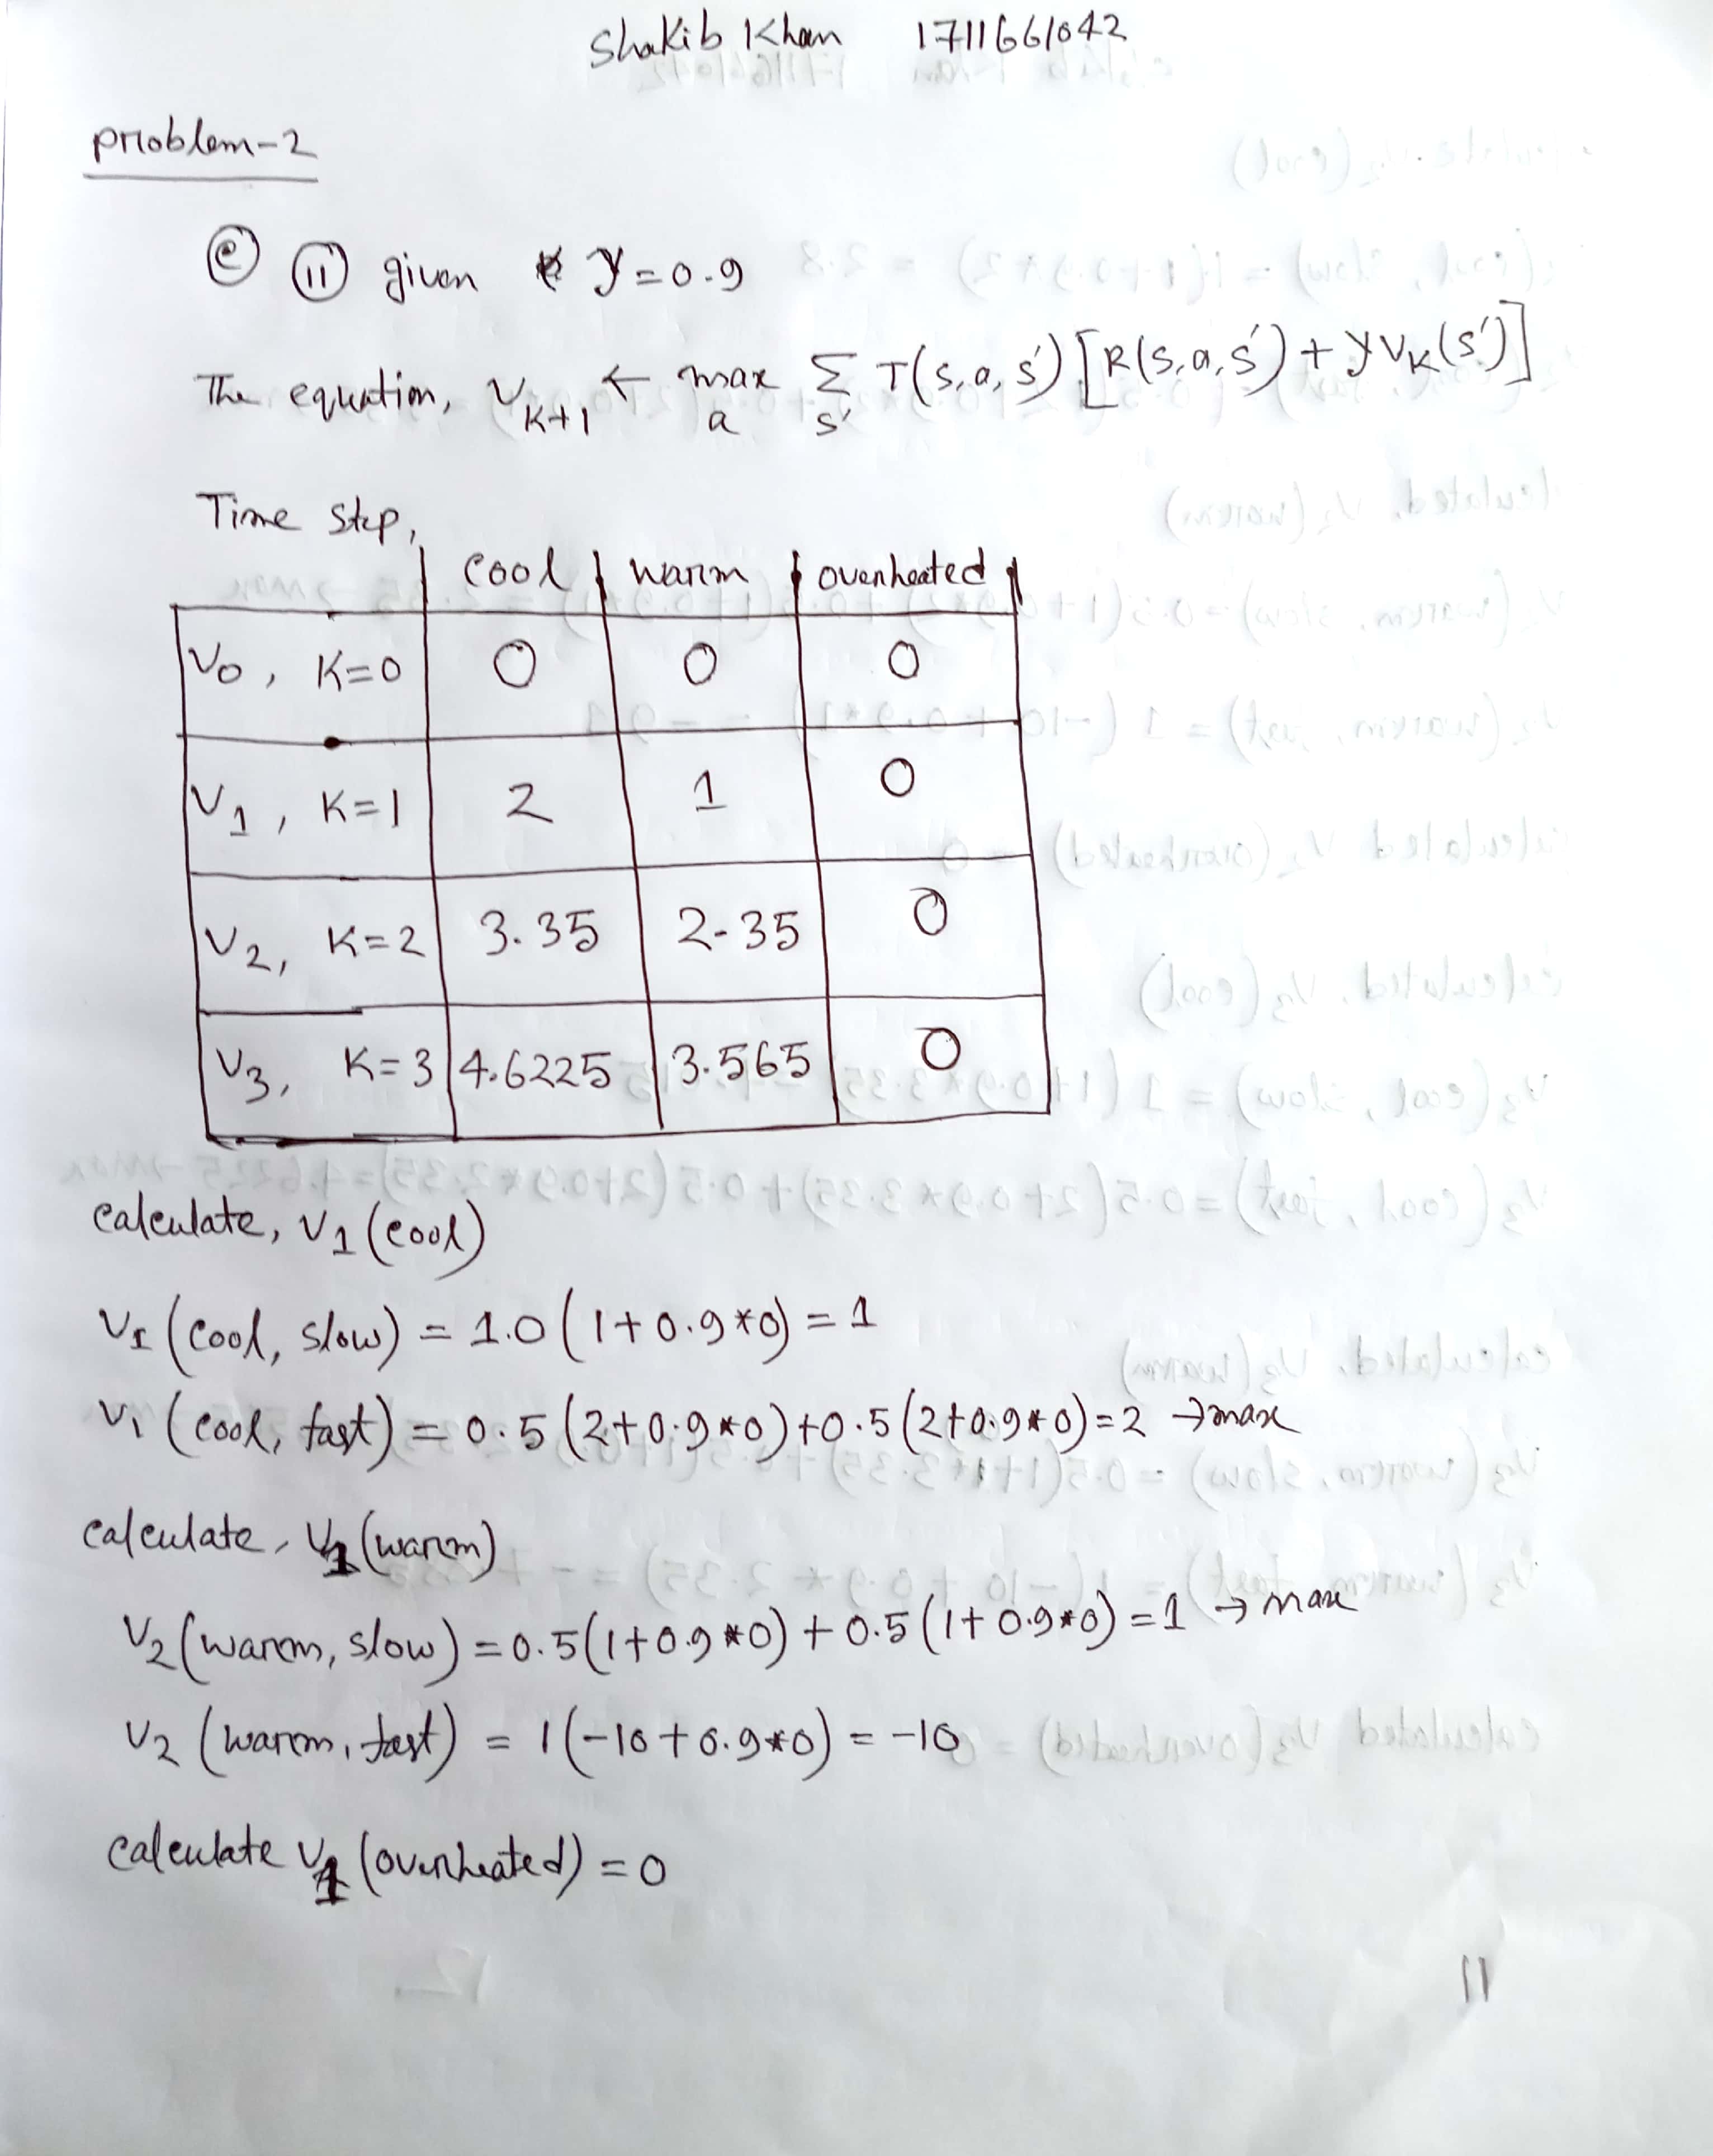 Shakib Khan 1711661042
problem-2
(e) (ii) given γ=0.9
The equation, V_{K+1} ← max_a Σ_{s'} T(s,a,s') [R(s,a,s') + γ V_K(s')]
Time step,
cool | warm | overheated
V_0, K=0 | 0 | 0 | 0
V_1, K=1 | 2 | 1 | 0
V_2, K=2 | 3.35 | 2.35 | 0
V_3, K=3 | 4.6225 | 3.565 | 0
calculate, V_1 (cool)
V_1 (cool, slow) = 1.0 (1+0.9*0) = 1
V_1 (cool, fast) = 0.5 (2+0.9*0)+0.5(2+0.9*0)=2 →max
calculate, V_1 (warm)
V_2 (warm, slow) = 0.5(1+0.9*0) + 0.5 (1+0.9*0) = 1 → max
V_2 (warm, fast) = 1(-10+0.9*0) = -10
calculate V_1 (overheated) = 0
11